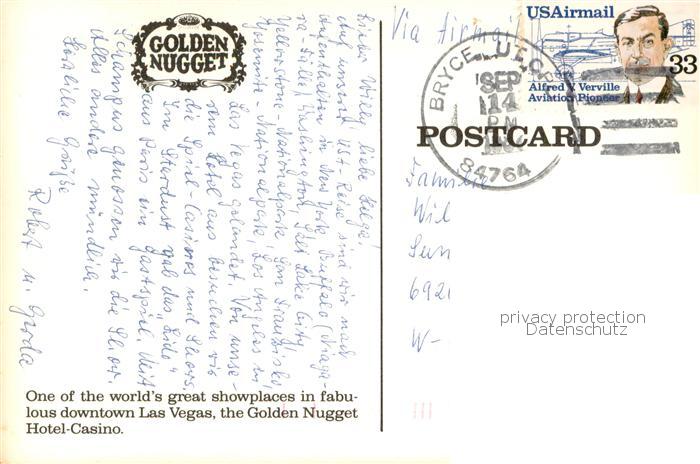 GOLDEN
NUGGET
Lieber Willy, liebe Helga!
Auf unserer USA-Reise sind wir nach
Aufenthalten in New York, Buffalo (Niaga-
ra-Fälle) Washington, Salt Lake City,
Yellowstone-Nationalpark, San Franzisko,
Yosemite-Nationalpark, Los Angeles in
Las Vegas gelandet. Von unse-
rem Hotel aus besuchen wir
die Spiel-Casinos und Shows.
Im Stardust gab das "Lido"
aus Paris ein Gastspiel. Mit
Schampus genossen wir die Show.
Alles andere mündlich.
Herzliche Grüße
Robert u. Gerda
One of the world's great showplaces in fabu-
lous downtown Las Vegas, the Golden Nugget
Hotel-Casino.
Via Airmail
USAirmail
33
Alfred V. Verville
Aviation Pioneer
BRYCE, UT.
SEP
14
PM
84764
POSTCARD
Familie
Wil
692
W-
privacy protection
Datenschutz